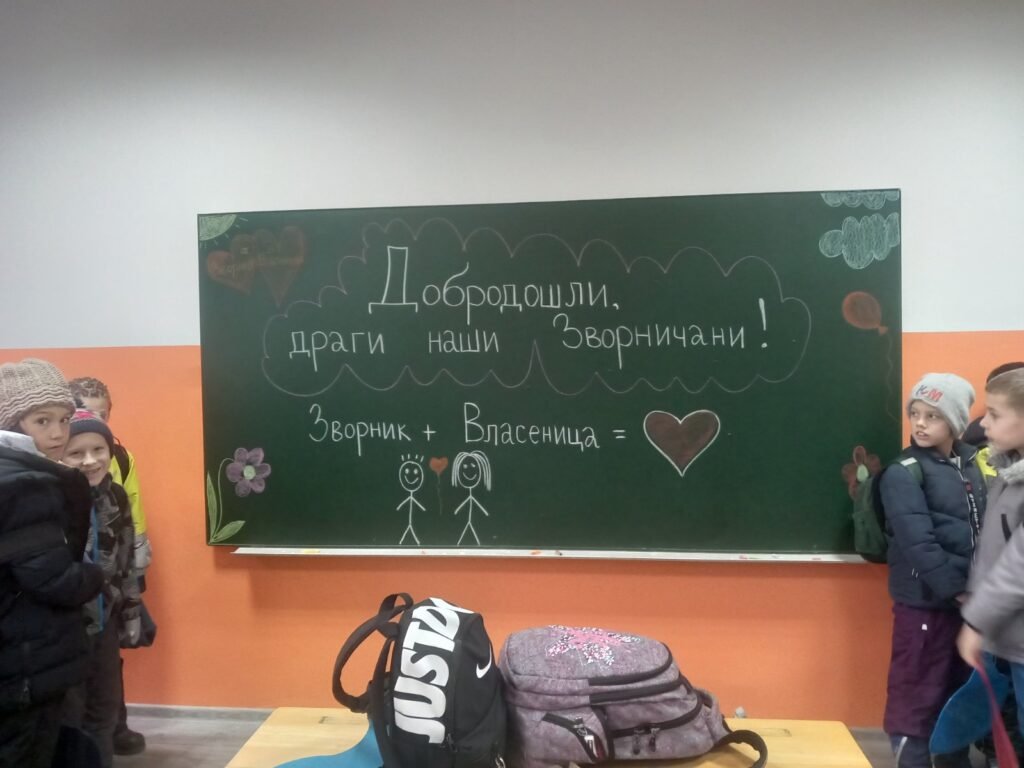 Добродошли,
драги наши Зворничани!
Зворник + Власеница =
JUST DO
K M